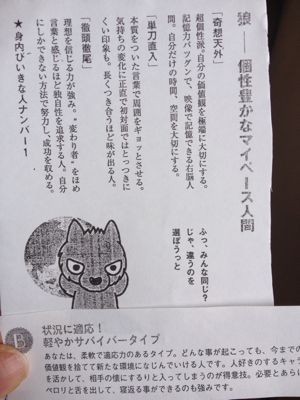 狼──個性豊かなマイペース人間
「奇想天外」
超個性派。自分の価値観を極端に大切にする。
記憶力バツグンで、映像で記憶できる右脳人
間。自分だけの時間、空間を大切にする。
「単刀直入」
本質をついた言葉で周囲をギョッとさせる。
気持ちの変化に正直で初対面ではとっつきに
くい印象も。長くつき合うほど味が出る人。
「徹頭徹尾」
理想を信じる力が強み。“変わり者”をほめ
言葉と感じるほど独自性を追求する人。自分
にしかできない方法で努力し、成功を収める。
★身内びいきな人ナンバー1
ふっ、みんな同じ?
じゃ、違うのを
選ぼうっと
B
状況に適応!
軽やかサバイバータイプ
あなたは、柔軟で適応力のあるタイプ。どんな事が起こっても、今までの
価値観を捨てて新たな環境になじんでいける人です。人好きのするキャラ
を活かして、相手の懐にするりと入ってしまうのが得意技。必要とあらば
ペロリと舌を出して、寝返る事ができるのも強みです。